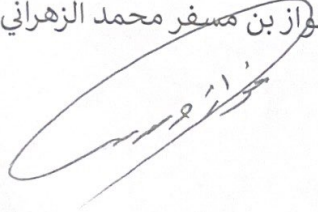 فواز بن مسفر محمد الزهراني